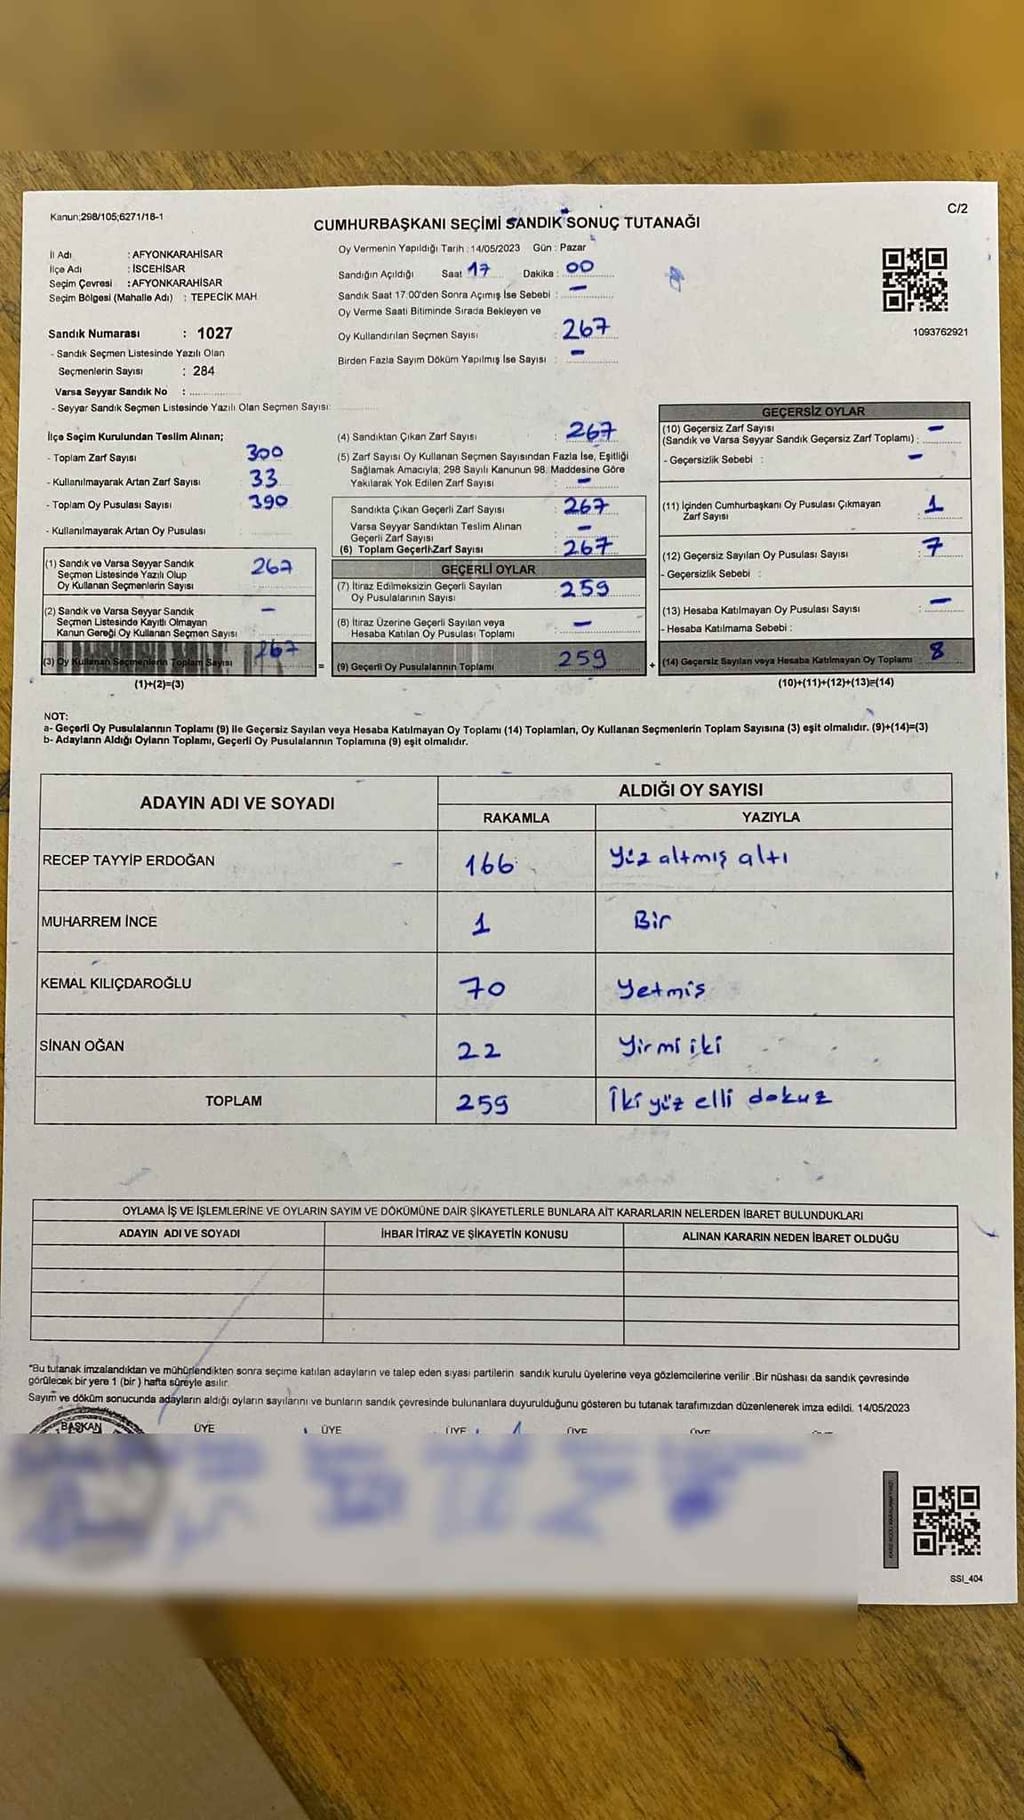 Kanun;298/105;6271/18-1
C/2
CUMHURBAŞKANI SEÇİMİ SANDIK SONUÇ TUTANAĞI
İl Adı : AFYONKARAHİSAR
İlçe Adı : İSCEHİSAR
Seçim Çevresi : AFYONKARAHİSAR
Seçim Bölgesi (Mahalle Adı) : TEPECİK MAH
Oy Vermenin Yapıldığı Tarih : 14/05/2023 Gün : Pazar
Sandığın Açıldığı Saat 17 Dakika : 00
Sandık Saat 17:00'den Sonra Açımış İse Sebebi : –
Oy Verme Saati Bitiminde Sırada Bekleyen ve
Oy Kullandırılan Seçmen Sayısı : 267
Birden Fazla Sayım Döküm Yapılmış İse Sayısı : –
1093762921
Sandık Numarası : 1027
- Sandık Seçmen Listesinde Yazılı Olan
Seçmenlerin Sayısı : 284
Varsa Seyyar Sandık No :
- Seyyar Sandık Seçmen Listesinde Yazılı Olan Seçmen Sayısı:
İlçe Seçim Kurulundan Teslim Alınan;
- Toplam Zarf Sayısı 300
- Kullanılmayarak Artan Zarf Sayısı 33
- Toplam Oy Pusulası Sayısı 390
- Kullanılmayarak Artan Oy Pusulası
(1) Sandık ve Varsa Seyyar Sandık
Seçmen Listesinde Yazılı Olup
Oy Kullanan Seçmenlerin Sayısı 267
(2) Sandık ve Varsa Seyyar Sandık
Seçmen Listesinde Kayıtlı Olmayan
Kanun Gereği Oy Kullanan Seçmen Sayısı –
(3) Oy Kullanan Seçmenlerin Toplam Sayısı 267
(1)+(2)=(3)
(4) Sandıktan Çıkan Zarf Sayısı : 267
(5) Zarf Sayısı Oy Kullanan Seçmen Sayısından Fazla İse, Eşitliği
Sağlamak Amacıyla; 298 Sayılı Kanunun 98. Maddesine Göre
Yakılarak Yok Edilen Zarf Sayısı : –
Sandıkta Çıkan Geçerli Zarf Sayısı : 267
Varsa Seyyar Sandıktan Teslim Alınan
Geçerli Zarf Sayısı : –
(6) Toplam Geçerli Zarf Sayısı : 267
GEÇERLİ OYLAR
(7) İtiraz Edilmeksizin Geçerli Sayılan
Oy Pusulalarının Sayısı : 259
(8) İtiraz Üzerine Geçerli Sayılan veya
Hesaba Katılan Oy Pusulası Toplamı : –
= (9) Geçerli Oy Pusulalarının Toplamı 259
GEÇERSİZ OYLAR
(10) Geçersiz Zarf Sayısı
(Sandık ve Varsa Seyyar Sandık Geçersiz Zarf Toplamı) : –
- Geçersizlik Sebebi : –
(11) İçinden Cumhurbaşkanı Oy Pusulası Çıkmayan
Zarf Sayısı : 1
(12) Geçersiz Sayılan Oy Pusulası Sayısı : 7
- Geçersizlik Sebebi :
(13) Hesaba Katılmayan Oy Pusulası Sayısı : –
- Hesaba Katılmama Sebebi :
+ (14) Geçersiz Sayılan veya Hesaba Katılmayan Oy Toplamı 8
(10)+(11)+(12)+(13)=(14)
NOT:
a- Geçerli Oy Pusulalarının Toplamı (9) ile Geçersiz Sayılan veya Hesaba Katılmayan Oy Toplamı (14) Toplamları, Oy Kullanan Seçmenlerin Toplam Sayısına (3) eşit olmalıdır. (9)+(14)=(3)
b- Adayların Aldığı Oyların Toplamı, Geçerli Oy Pusulalarının Toplamına (9) eşit olmalıdır.
ADAYIN ADI VE SOYADI
ALDIĞI OY SAYISI
RAKAMLA YAZIYLA
RECEP TAYYİP ERDOĞAN 166 Yüz altmış altı
MUHARREM İNCE 1 Bir
KEMAL KILIÇDAROĞLU 70 Yetmiş
SİNAN OĞAN 22 Yirmi iki
TOPLAM 259 İki yüz elli dokuz
OYLAMA İŞ VE İŞLEMLERİNE VE OYLARIN SAYIM VE DÖKÜMÜNE DAİR ŞİKAYETLERLE BUNLARA AİT KARARLARIN NELERDEN İBARET BULUNDUKLARI
ADAYIN ADI VE SOYADI İHBAR İTİRAZ VE ŞİKAYETİN KONUSU ALINAN KARARIN NEDEN İBARET OLDUĞU
*Bu tutanak imzalandıktan ve mühürlendikten sonra seçime katılan adayların ve talep eden siyasi partilerin sandık kurulu üyelerine veya gözlemcilerine verilir .Bir nüshası da sandık çevresinde
görülecek bir yere 1 (bir ) hafta süreyle asılır.
Sayım ve döküm sonucunda adayların aldığı oyların sayılarını ve bunların sandık çevresinde bulunanlara duyurulduğunu gösteren bu tutanak tarafımızdan düzenlenerek imza edildi. 14/05/2023
BAŞKAN ÜYE ÜYE ÜYE ÜYE ÜYE
SSI_404